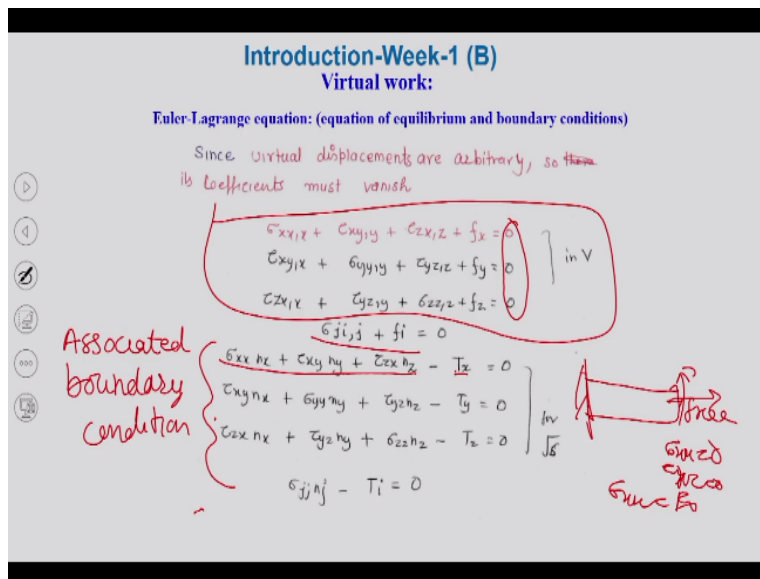 Introduction-Week-1 (B)
Virtual work:
Euler-Lagrange equation: (equation of equilibrium and boundary conditions)
Since virtual displacements are arbitrary, so
its coefficients must vanish
σxx,x + τxy,y + τzx,z + fx = 0
τxy,x + σyy,y + τyz,z + fy = 0
in V
τzx,x + τyz,y + σzz,z + fz = 0
σji,j + fi = 0
Associated
boundary
condition
σxx nx + τxy ny + τzx nz - Tx = 0
τxy nx + σyy ny + τyz nz - Ty = 0
in
τzx nx + τyz ny + σzz nz - Tz = 0
σjj nj - Ti = 0
free